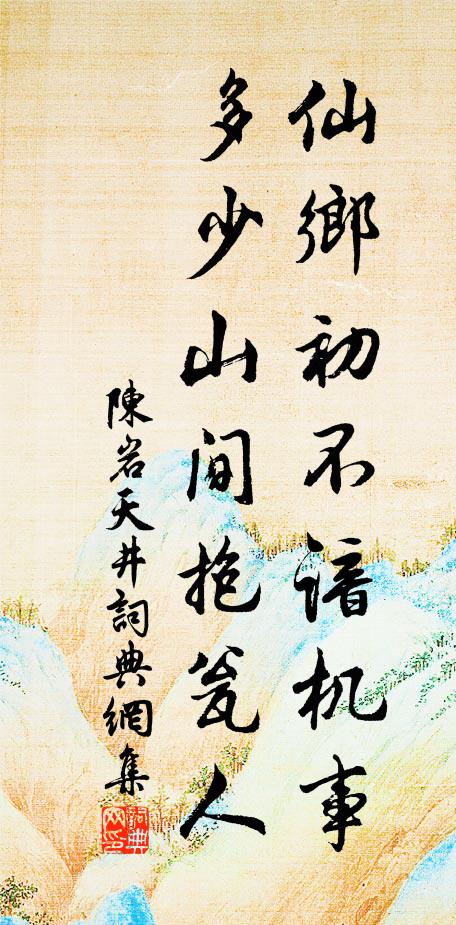 仙鄉初不諳机事
多少山間抱瓮人
陳岩天井詞典網集
詞典网印